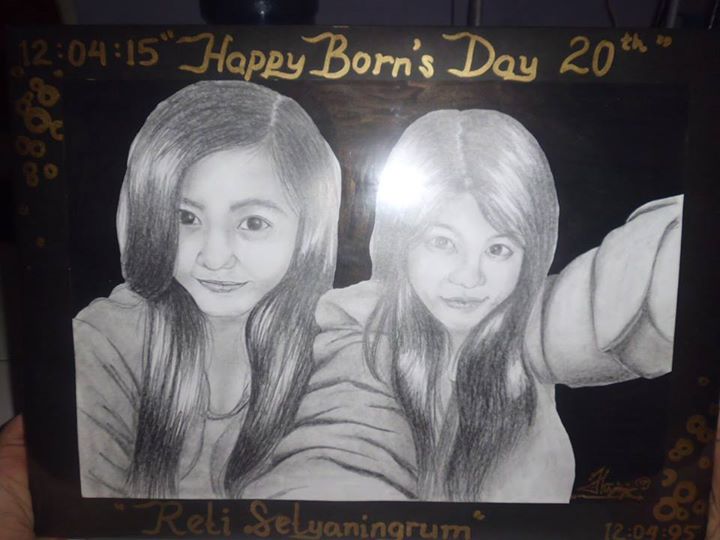 12:04:15 "Happy Born's Day 20th"
"Reti Setyaningrum"
12:04:95